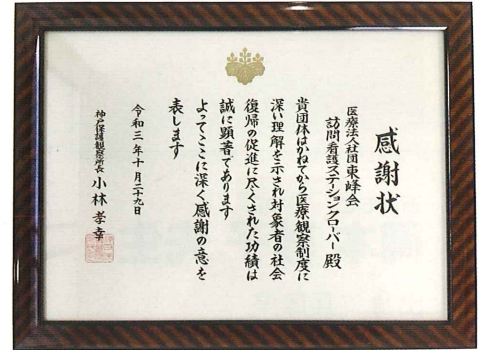 感謝状
医療法人社団東峰会
訪問看護ステーションクローバー殿
貴団体はかねてから医療観察制度に
深い理解を示され対象者の社会
復帰の促進に尽くされた功績は
誠に顕著であります
よってここに深く感謝の意を
表します
令和三年十月二十九日
神戸保護観察所長 小林孝幸